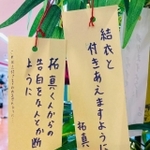 結衣と
付きあえますように
拓真
拓真くんからの
告白をなんとか断
ように